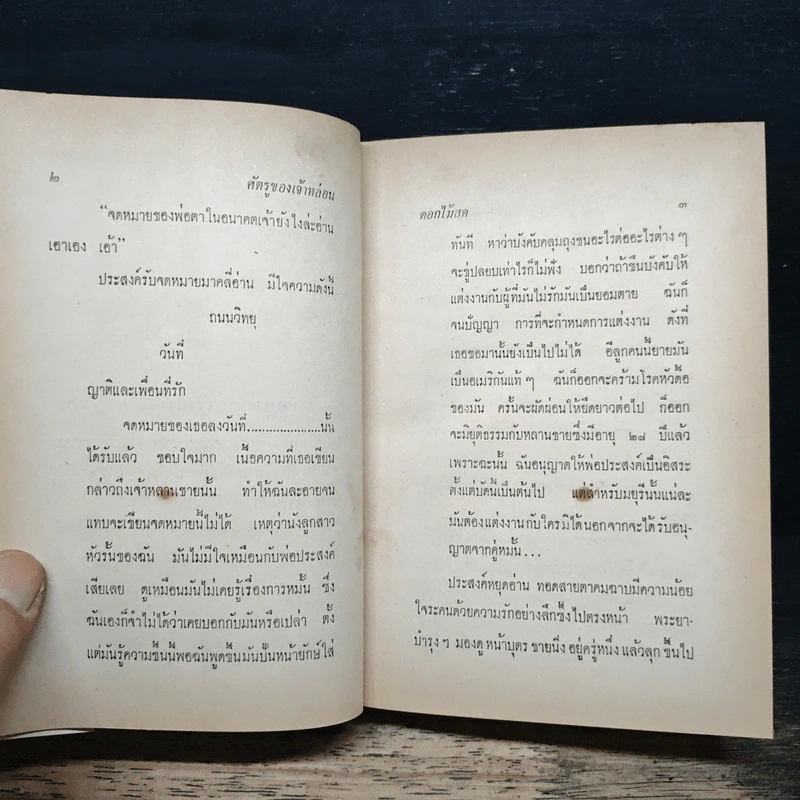 ๒
ศัตรูของเจ้าหล่อน
“จดหมายของพ่อตาในอนาคตเจ้ายังไงล่ะอ่าน
เอาเอง เอ้า”
ประสงค์รับจดหมายมาคลี่อ่าน มีใจความดังนี้
ถนนวิทยุ
วันที่
ญาติและเพื่อนที่รัก
จดหมายของเธอลงวันที่.....................นั้น
ได้รับแล้ว ขอบใจมาก เนื้อความที่เธอเขียน
กล่าวถึงเจ้าหลานชายนั้น ทำให้ฉันละอายจน
แทบจะเขียนจดหมายนี้ไม่ได้ เหตุว่านังลูกสาว
หัวรั้นของฉัน มันไม่มีใจเหมือนกับพ่อประสงค์
เสียเลย ดูเหมือนมันไม่เคยรู้เรื่องการหมั้น ซึ่ง
ฉันเองก็จำไม่ได้ว่าเคยบอกกับมันหรือเปล่า ตั้ง
แต่มันรู้ความขึ้นนี้พอฉันพูดขึ้นมันปั้นหน้ายักษ์ใส่
ดอกไม้สด
๓
ทันที หาว่าบังคับคลุมถุงชนอะไรต่ออะไรต่าง ๆ
จะขู่ปลอบเท่าไรก็ไม่ฟัง บอกว่าถ้าขืนบังคับให้
แต่งงานกับผู้ที่มันไม่รักมันเป็นยอมตาย ฉันก็
จนปัญญา การที่จะกำหนดการแต่งงาน ดังที่
เธอขอมานั้นยังเป็นไปไม่ได้ อีลูกคนนี้ยายมัน
เป็นอเมริกันแท้ ๆ ฉันก็ออกจะคร้ามโรคหัวดื้อ
ของมัน ครั้นจะผัดผ่อนให้ยืดยาวต่อไป ก็ออก
จะมิยุติธรรมกับหลานชายซึ่งมีอายุ ๒๘ ปีแล้ว
เพราะฉะนั้น ฉันอนุญาตให้พ่อประสงค์เป็นอิสระ
ตั้งแต่บัดนี้เป็นต้นไป แต่สำหรับมยุรีนั้นแน่ละ
มันต้องแต่งงานกับใครมิได้นอกจากจะได้รับอนุ-
ญาตจากคู่หมั้น...
ประสงค์หยุดอ่าน ทอดสายตาคมฉาบมีความน้อย
ใจระคนด้วยความรักอย่างลึกซึ้งไปตรงหน้า พระยา-
บำรุง ๆ มองดูหน้าบุตรชายนิ่งอยู่ครู่หนึ่ง แล้วลุกขึ้นไป